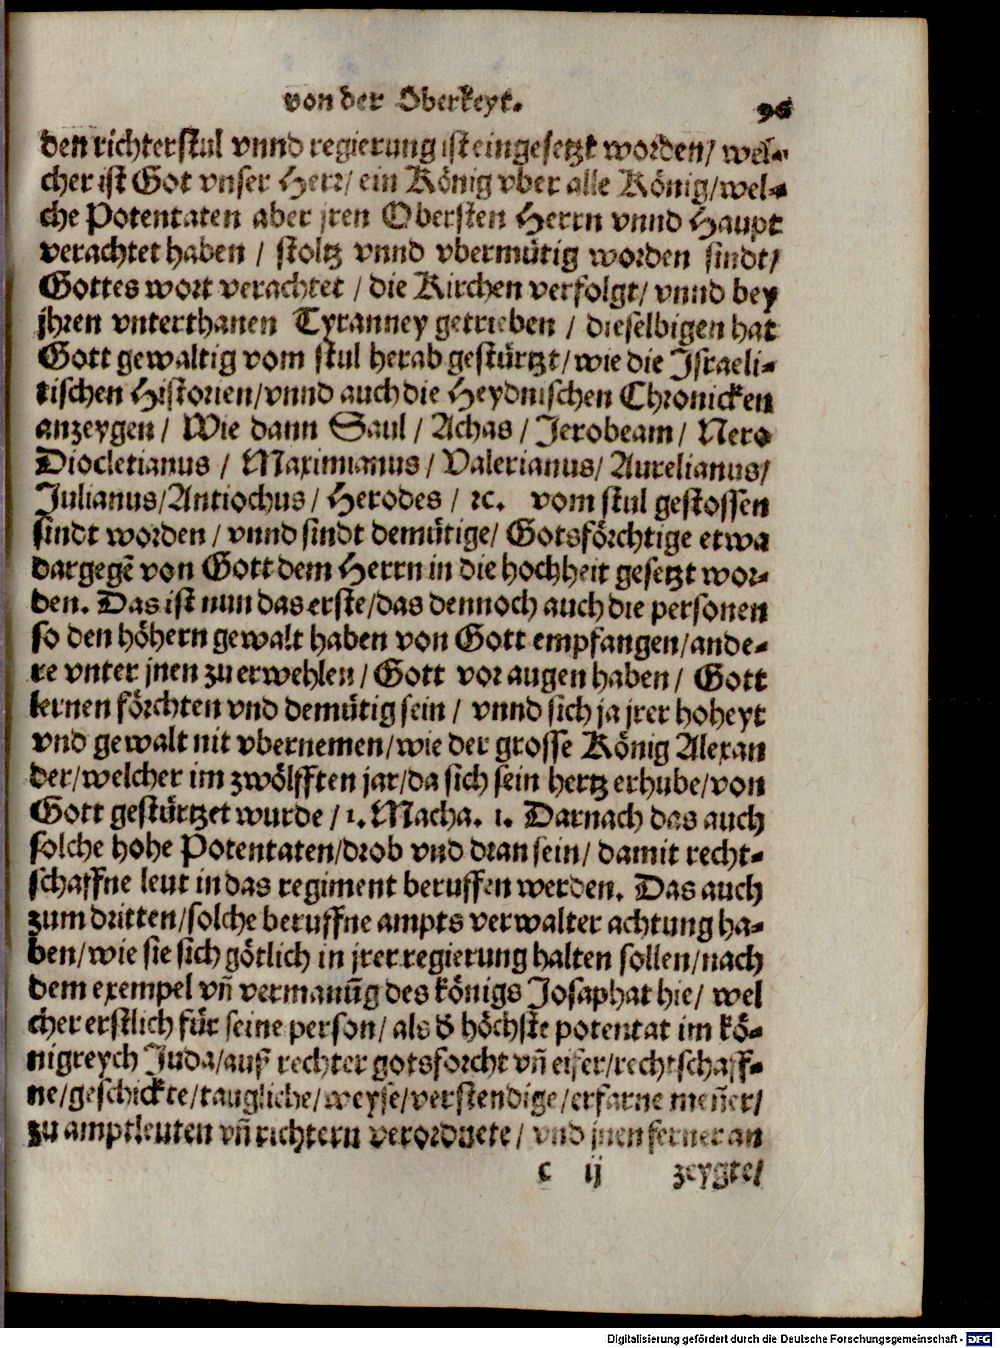 von der Oberkeyt. 96
den richterstul vnnd regierung ist eingesetzt worden/ wel-
cher ist Got vnser Herr/ ein König vber alle König/wel-
che Potentaten aber jren Obersten Herrn vnnd Haupt
verachtet haben / stoltz vnnd vbermütig worden sindt/
Gottes wort verachtet / die Kirchen verfolgt/ vnnd bey
jhren vnterthanen Tyranney getrieben / dieselbigen hat
Gott gewaltig vom stul herab gestürtzt/wie die Israeli-
tischen Historien/vnnd auch die Heydnischen Chronicken
anzeygen/ Wie dann Saul / Achas / Jerobeam/ Nero
Diocletianus / Maximianus/ Valerianus/ Aurelianus/
Julianus/Antiochus / Herodes / ꝛc. vom stul gestossen
sindt worden / vnnd sindt demütige/ Gotsförchtige etwa
dargegē von Gott dem Herrn in die hochheit gesetzt wor-
den. Das ist nun das erste/das dennoch auch die personen
so den höhern gewalt haben von Gott empfangen/ande-
re vnter jnen zu erwehlen/ Gott vor augen haben/ Gott
lernen förchten vnd demütig sein / vnnd sich ja jrer hoheyt
vnd gewalt nit vbernemen/wie der grosse König Alexan
der/welcher im zwölfften jar/da sich sein hertz erhube/von
Gott gestürtzet wurde / 1. Macha. 1. Darnach das auch
solche hohe Potentaten/drob vnd dran sein/ damit recht-
schaffne leut in das regiment beruffen werden. Das auch
zum dritten/solche beruffne ampts verwalter achtung ha-
ben/wie sie sich götlich in jrer regierung halten sollen/nach
dem exempel vn̄ vermanūg des königs Josaphat hie/ wel
cher erstlich für seine person/ als d̓ höchste potentat im kö-
nigreych Juda/auß rechter gotsforcht vn̄ eifer/rechtschaff-
ne/geschickte/taugliche/weyse/verstendige/erfarne men̄er/
zu amptleuten vn̄ richtern verordnete/ vnd jnen ferner an
c ij zeygte/
Digitalisierung gefördert durch die Deutsche Forschungsgemeinschaft - DFG